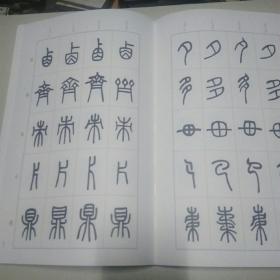 夕 夕 夕 夕
多 多 多 多
毌 毌 毌 毌
𢎘 𢎘 𢎘 𢎘
𣐺 𣐺 𣐺 𣐺
𠧪 𠧪 𠧪 𠧪
齊 齊 齊 齊
朿 朿 朿 朿
片 片 片 片
鼎 鼎 鼎 鼎